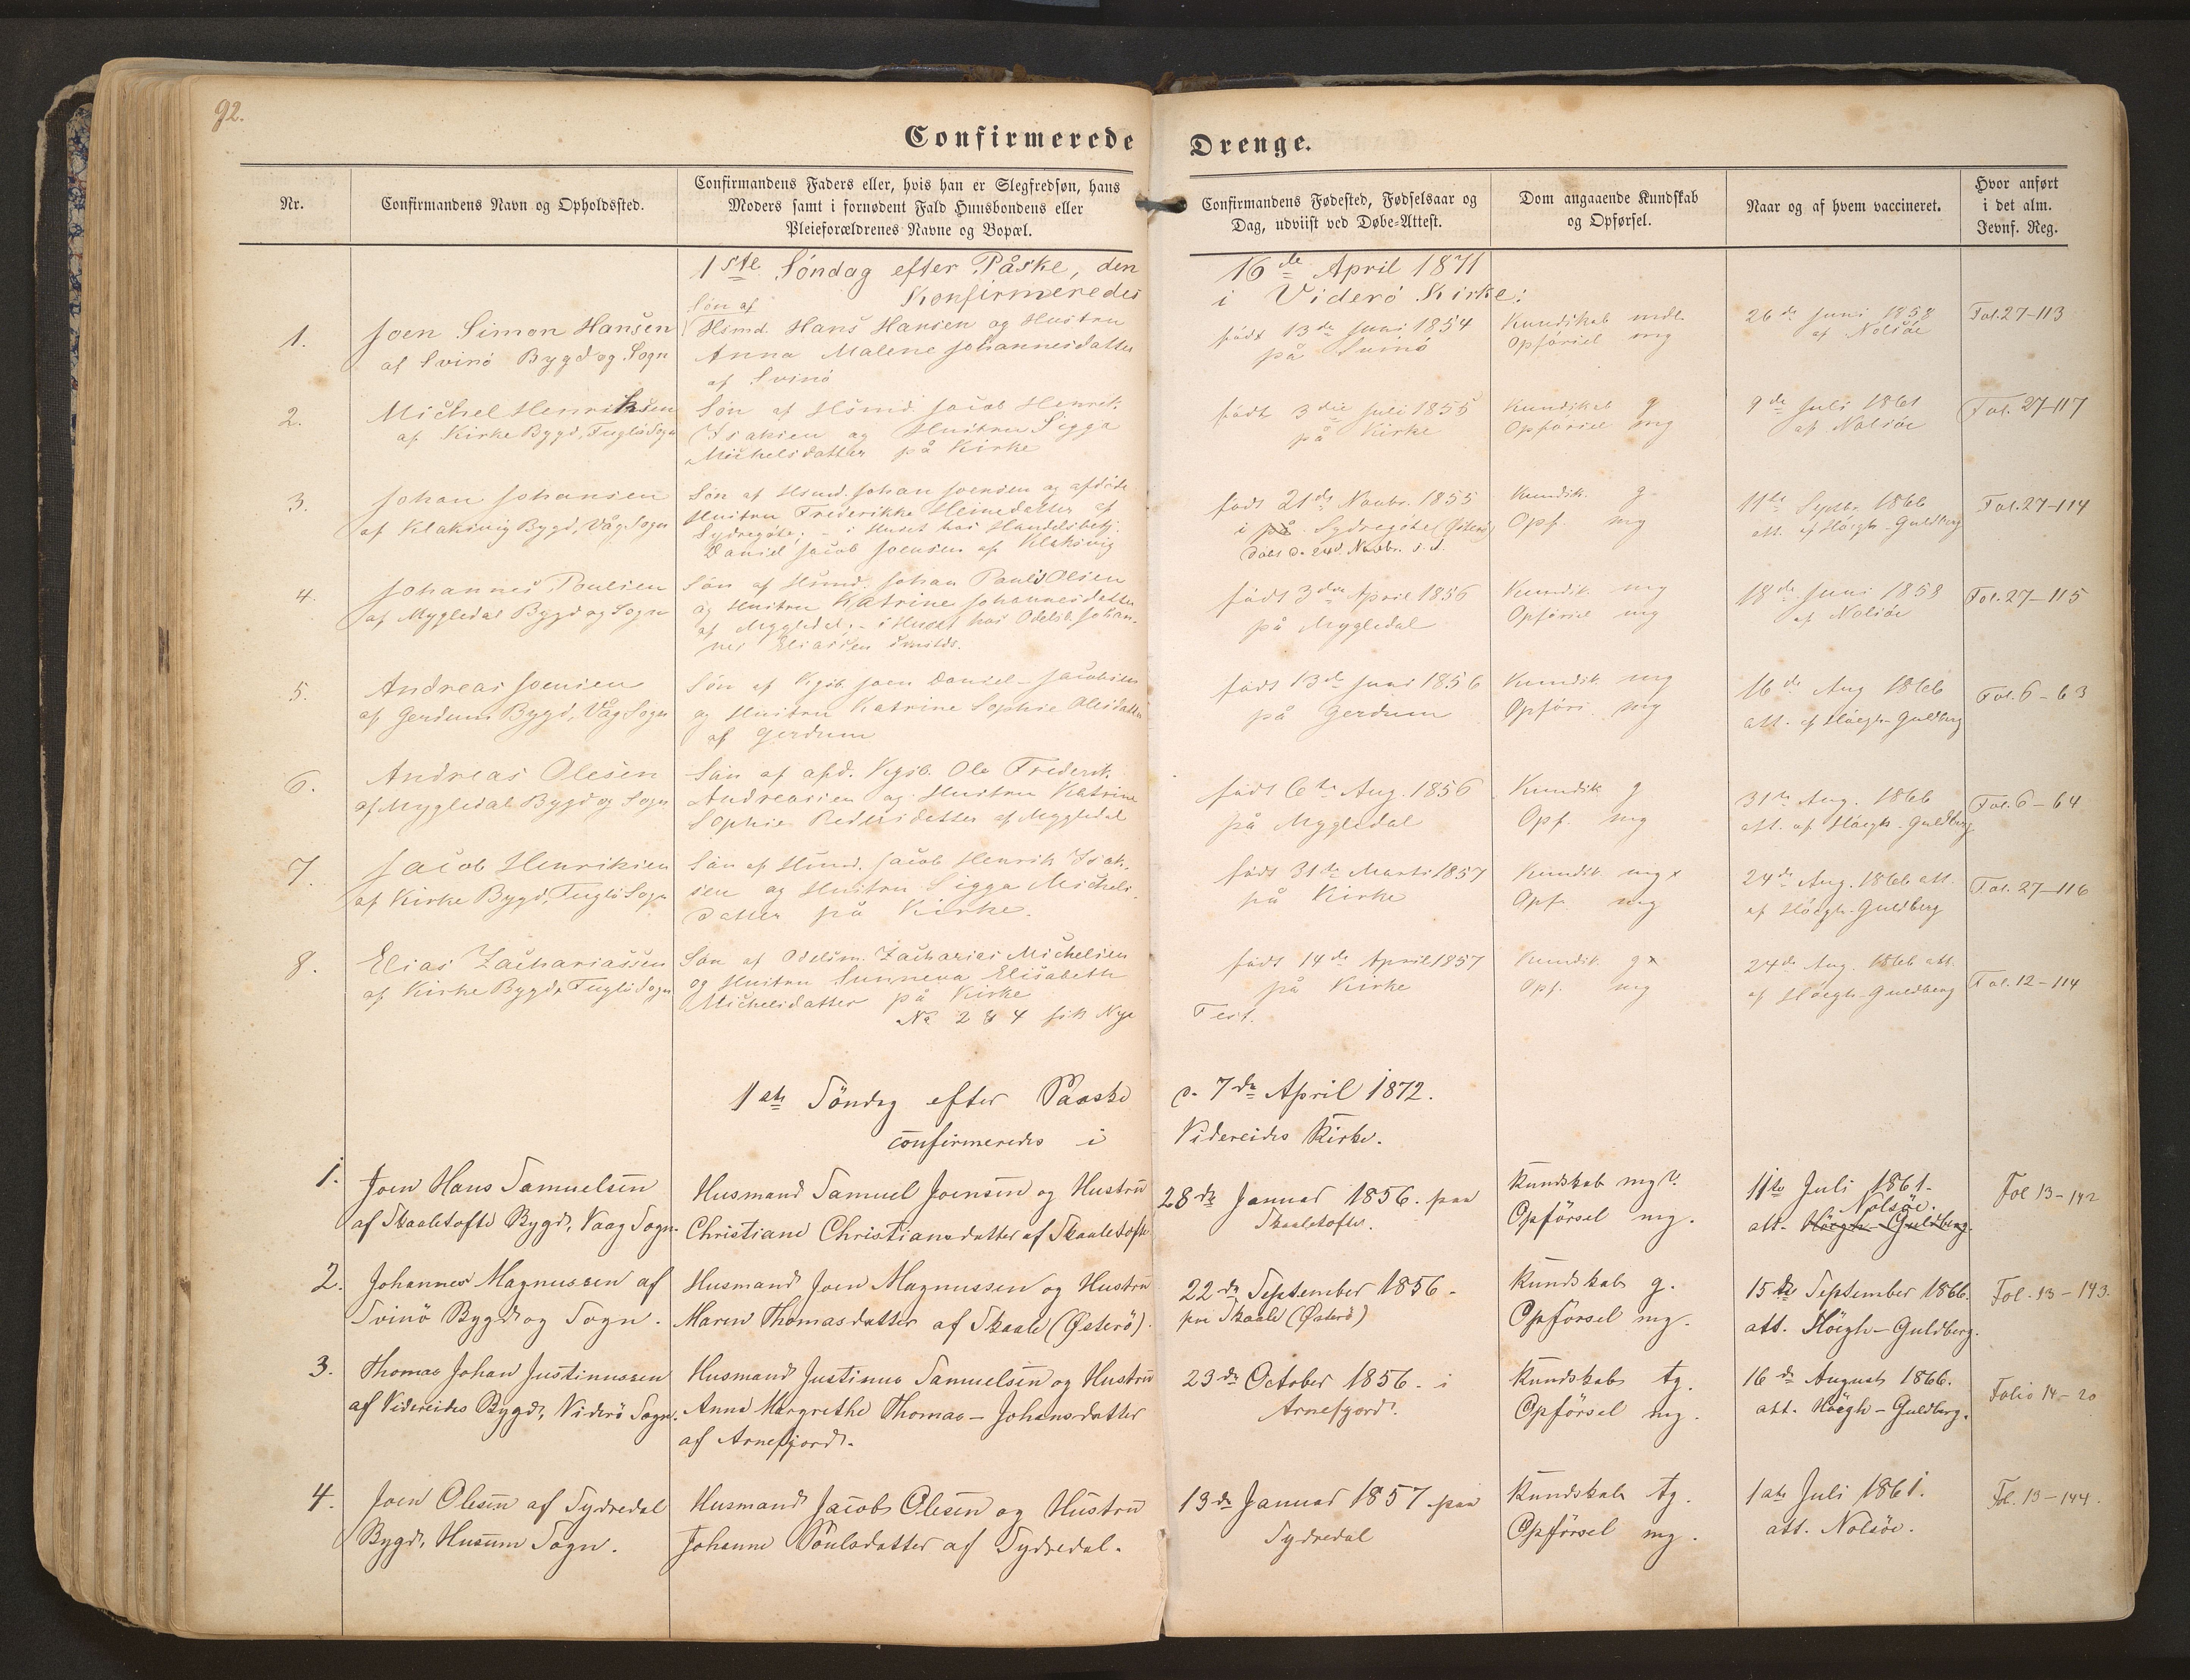 92.
Confirmerede Drenge.
Nr.
Confirmandens Navn og Opholdssted.
Confirmandens Faders eller, hvis han er Slegfredsøn, hans
Moders samt i fornødent Fald Huusbondens eller
Pleieforældrenes Navne og Bopæl.
Confirmandens Fødested, Fødselsaar og
Dag, udviist ved Døbe-Attest.
Dom angaaende Kundskab
og Opførsel.
Naar og af hvem vaccineret.
Hvor anført
i det alm.
Jevnf. Reg.
1ste Söndag efter Påske, den 16de April 1871
Konfirmeredes i Viderö Kirke:
1.
Joen Simon Hansen
af Svinö Bygd og Sogn
Sön af
Hsmd. Hans Hansen og Hustru
Anna Malene Johannesdatter
af Svinö
födt 13de Juni 1854
på Svinö
Kundskab mdl.
Opförsel mg
26de Juni 1858
af Nolsöe
Fol. 27-113
2.
Michel Henriksen
af Kirke Bygd, Fuglö Sogn
Sön af Hsmd. Jacob Henrik
Isaksen og Hustru Sigga
Michelsdatter på Kirke
födt 3die Juli 1855
på Kirke
Kundskab g
Opförsel mg
9de Juli 1861
af Nolsöe
Fol. 27-117
3.
Johan Johansen
af Klaksvig Bygd, Våg Sogn
Sön af Hsmd. Johan Joensen og afdöde
Hustru Frederikke Heinedatter af
Sydregöte; - i Huset hos Handelsbetj.
Daniel Jacob Joensen af Klaksvig
födt 21de Novbr. 1855
i på Sydregöte (Österö)
Kundsk. g
Opf. mg
11te Septbr. 1866
att. af Höegh-Guldberg
Fol. 27-114
4.
Johannes Poulsen
af Mygledal Bygd og Sogn
Sön af Hsmd. Johan Pauli Olsen
og Hustru Katrine Johannesdatter
af Mygledal; - i Huset hos Odelsb. Johan-
nes Eliassen
födt 3die April 1856
på Mygledal
Kundsk. mg
Opförsel mg
18de Juni 1858
af Nolsöe
Fol. 27-115
5.
Andreas Joensen
af Gerdum Bygd, Våg Sogn
Sön af Kgsb. Joen Daniel Jacobsen
og Hustru Katrine Sophie Olesdatter
af Gerdum
födt 13de Juni 1856
på Gerdum
Kundsk. mg
Opförs. mg
16de Aug 1866
att. af Höegh-Guldberg
Fol. 6-63
6.
Andreas Olesen
af Mygledal Bygd og Sogn
Sön af afd. Kgsb. Ole Frederik
Andreasen og Hustru Katrine
Sophie datter af Mygledal
födt 6te Aug. 1856
på Mygledal
Kundsk g
Opf. mg
31te Aug. 1866
att. af Höegh-Guldberg
Fol. 6-64
7.
Jacob Henriksen
af Kirke Bygd, Fuglö Sogn
Sön af Hsmd. Jacob Henrik Isak-
sen og Hustru Sigga Michels-
datter på Kirke.
födt 31te Marts 1857
på Kirke
Kundsk mgx
Opf. mg
24de Aug. 1866 att.
af Höegh-Guldberg
Fol. 27-116
8.
Elias Zachariassen
af Kirke Bygd, Fuglö Sogn
Sön af Odelsm. Zacharias Michelsen
og Hustru Sunneva Elisabeth
Michelsdatter på Kirke
födt 14de April 1857
på Kirke
Kundsk. gx
Opf. mg
24de Aug. 1866 att.
af Höegh-Guldberg
Fol. 12-114
No 2 & 4 fik Nye Test.
1ste Söndag efter Paaske d. 7de April 1872.
confirmeredes i Videreides Kirke.
1.
Joen Hans Samuelsen
af Skaaletofte Bygd, Vaag Sogn.
Husmand Samuel Joensen og Hustru
Christiane Christiansdatter af Skaaletofte
28de Januar 1856. paa
Skaaletofte.
Kundskab mg?.
Opförsel mg.
11te Juli 1861.
Nolsöe.
att. Höegh-Guldberg.
Fol 13-142
2.
Johannes Magnussen af
Svinö Bygd og Sogn.
Husmand Joen Magnussen og Hustru
Maren Thomasdatter af Skaale (Österö).
22de September 1856.
paa Skaale (Österö)
Kundskab g.
Opförsel mg.
15de September 1866.
att. Höegh-Guldberg.
Fol. 13-143.
3.
Thomas Johan Justinussen
af Videreides Bygd, Viderö Sogn.
Husmand Justinus Samuelsen og Hustru
Anna Margrethe Thomas-Johansdatter
af Arnefjord.
23de October 1856. i
Arnefjord.
Kundskab tg.
Opförsel mg.
16de August 1866.
att. Höegh-Guldberg.
Folio 14-20
4.
Joen Olesen af Sydredal
Bygd, Husum Sogn.
Husmand Jacob Olesen og Hustru
Johanne Poulsdatter af Sydredal.
13de Januar 1857 paa
Sydredal
Kundskab tg.
Opförsel mg.
1ste Juli 1861.
att. Nolsöe.
Fol. 13-144.